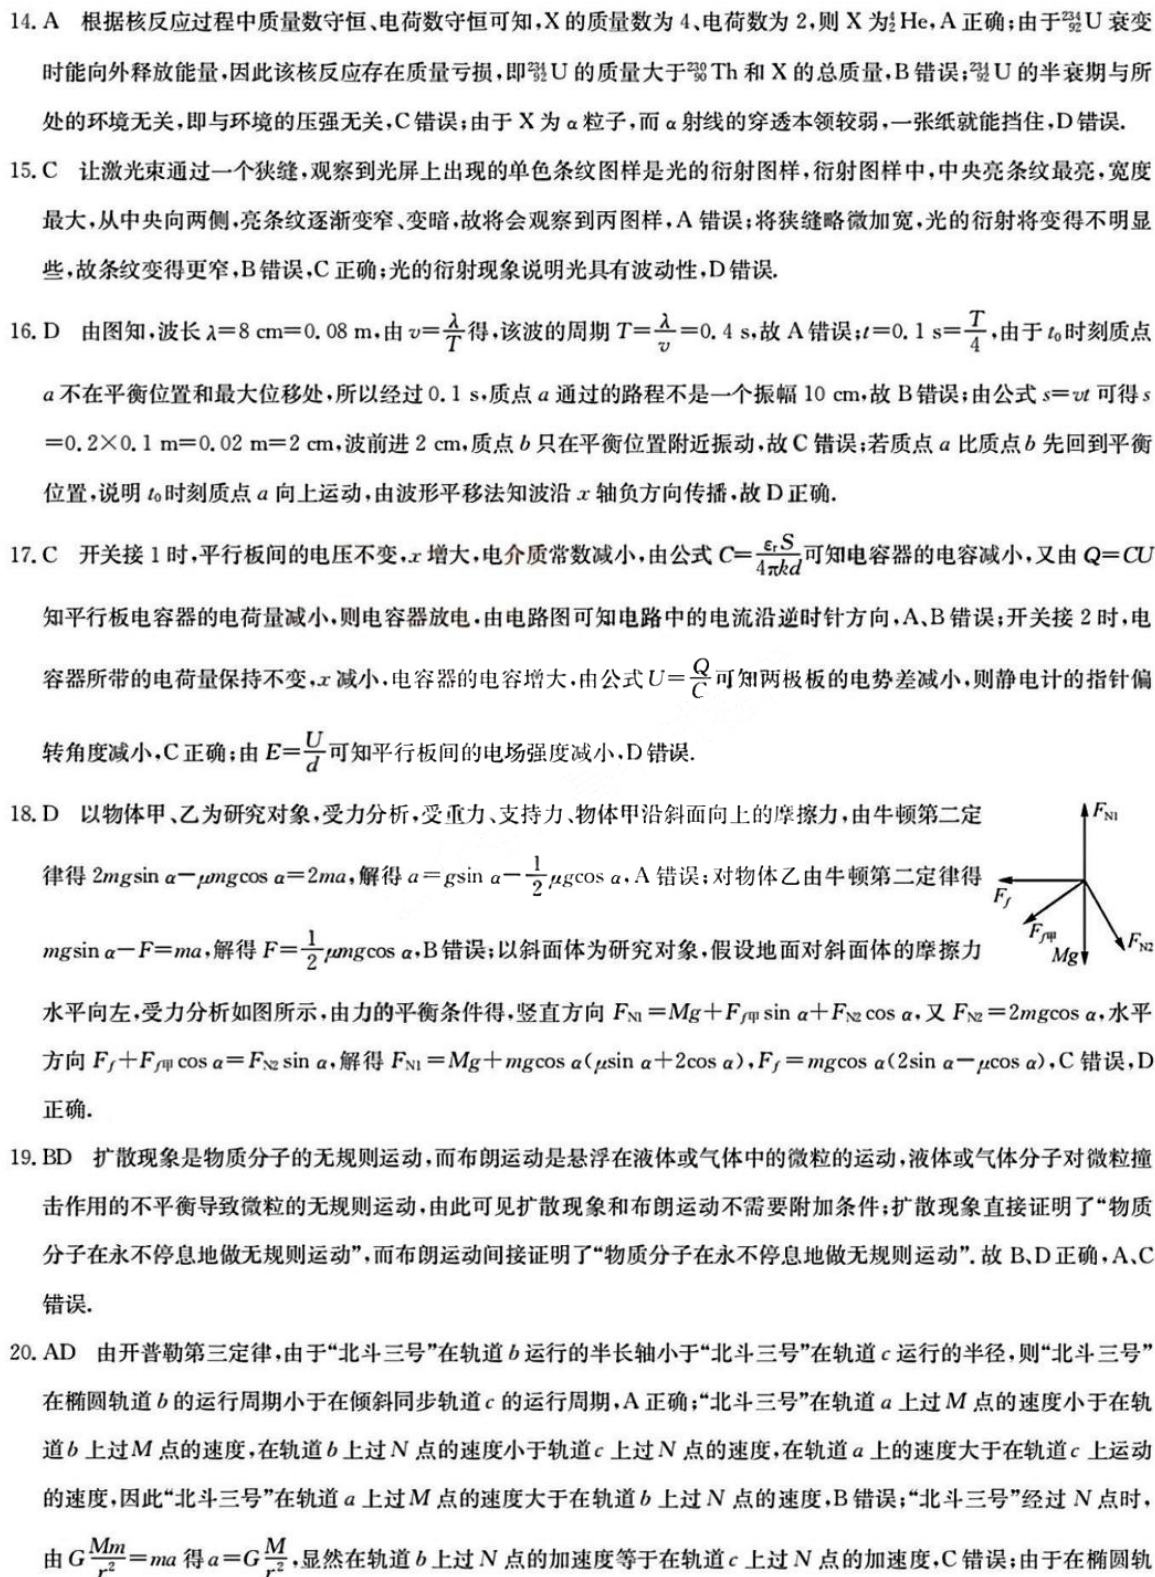 14. A 根据核反应过程中质量数守恒、电荷数守恒可知,X 的质量数为 4、电荷数为 2,则 X 为⁴₂He,A 正确;由于²³⁴₉₂U 衰变
时能向外释放能量,因此该核反应存在质量亏损,即²³⁴₉₂U 的质量大于²³⁰₉₀Th 和 X 的总质量,B 错误;²³⁴₉₂U 的半衰期与所
处的环境无关,即与环境的压强无关,C 错误;由于 X 为 α 粒子,而 α 射线的穿透本领较弱,一张纸就能挡住,D 错误.
15. C 让激光束通过一个狭缝,观察到光屏上出现的单色条纹图样是光的衍射图样,衍射图样中,中央亮条纹最亮,宽度
最大,从中央向两侧,亮条纹逐渐变窄、变暗,故将会观察到丙图样,A 错误;将狭缝略微加宽,光的衍射将变得不明显
些,故条纹变得更窄,B 错误,C 正确;光的衍射现象说明光具有波动性,D 错误.
16. D 由图知,波长 λ=8 cm=0.08 m,由 v=λ/T得,该波的周期 T=λ/v=0.4 s,故 A 错误;t=0.1 s=T/4,由于 t₀时刻质点
a 不在平衡位置和最大位移处,所以经过 0.1 s,质点 a 通过的路程不是一个振幅 10 cm,故 B 错误;由公式 s=vt 可得 s
=0.2×0.1 m=0.02 m=2 cm,波前进 2 cm,质点 b 只在平衡位置附近振动,故 C 错误;若质点 a 比质点 b 先回到平衡
位置,说明 t₀时刻质点 a 向上运动,由波形平移法知波沿 x 轴负方向传播,故 D 正确.
17. C 开关接 1 时,平行板间的电压不变,x 增大,电介质常数减小,由公式 C=εᵣS/4πkd可知电容器的电容减小,又由 Q=CU
知平行板电容器的电荷量减小,则电容器放电,由电路图可知电路中的电流沿逆时针方向,A、B 错误;开关接 2 时,电
容器所带的电荷量保持不变,x 减小,电容器的电容增大,由公式 U=Q/C可知两极板的电势差减小,则静电计的指针偏
转角度减小,C 正确;由 E=U/d可知平行板间的电场强度减小,D 错误.
18. D 以物体甲、乙为研究对象,受力分析,受重力、支持力、物体甲沿斜面向上的摩擦力,由牛顿第二定
律得 2mgsin α−μmgcos α=2ma,解得 a=gsin α−1/2 μgcos α,A 错误;对物体乙由牛顿第二定律得
mgsin α−F=ma,解得 F=1/2 μmgcos α,B 错误;以斜面体为研究对象,假设地面对斜面体的摩擦力
F_N1
F_f
F_f甲
Mg
F_N2
水平向左,受力分析如图所示,由力的平衡条件得,竖直方向 F_N1=Mg+F_f甲 sin α+F_N2 cos α,又 F_N2=2mgcos α,水平
方向 F_f+F_f甲 cos α=F_N2 sin α,解得 F_N1=Mg+mgcos α(μsin α+2cos α),F_f=mgcos α(2sin α−μcos α),C 错误,D
正确.
19. BD 扩散现象是物质分子的无规则运动,而布朗运动是悬浮在液体或气体中的微粒的运动,液体或气体分子对微粒撞
击作用的不平衡导致微粒的无规则运动,由此可见扩散现象和布朗运动不需要附加条件;扩散现象直接证明了“物质
分子在永不停息地做无规则运动”,而布朗运动间接证明了“物质分子在永不停息地做无规则运动”.故 B、D 正确,A、C
错误.
20. AD 由开普勒第三定律,由于“北斗三号”在轨道 b 运行的半长轴小于“北斗三号”在轨道 c 运行的半径,则“北斗三号”
在椭圆轨道 b 的运行周期小于在倾斜同步轨道 c 的运行周期,A 正确;“北斗三号”在轨道 a 上过 M 点的速度小于在轨
道 b 上过 M 点的速度,在轨道 b 上过 N 点的速度小于轨道 c 上过 N 点的速度,在轨道 a 上的速度大于在轨道 c 上运动
的速度,因此“北斗三号”在轨道 a 上过 M 点的速度大于在轨道 b 上过 N 点的速度,B 错误;“北斗三号”经过 N 点时,
由 G Mm/r²=ma 得 a=G M/r²,显然在轨道 b 上过 N 点的加速度等于在轨道 c 上过 N 点的加速度,C 错误;由于在椭圆轨